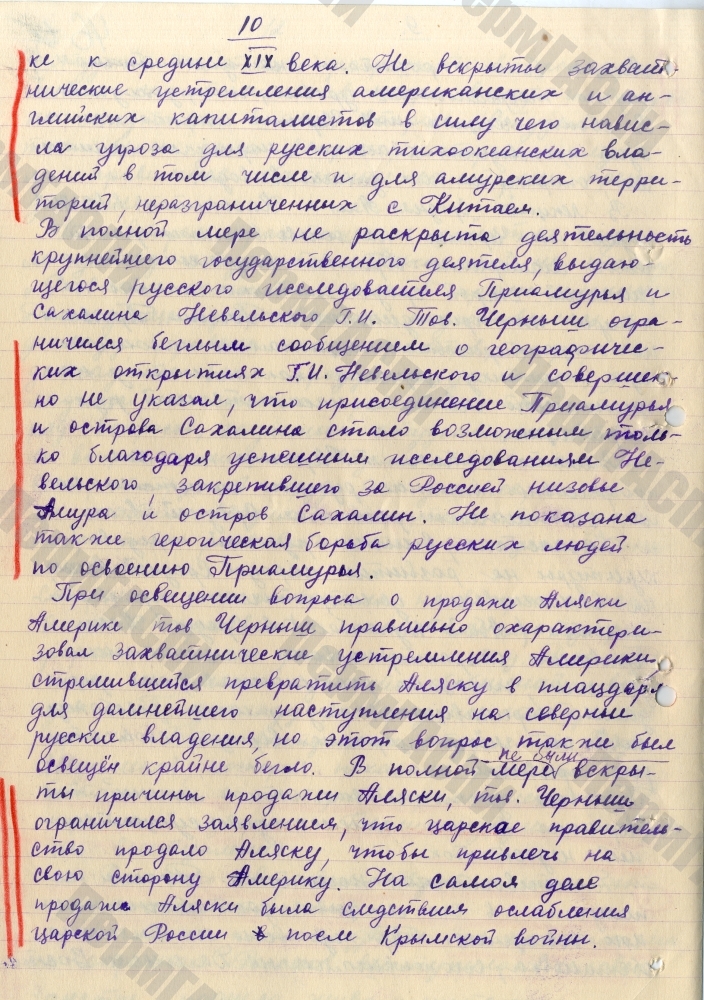 10
ке к средине XIX века. Не вскрыты захват-
нические устремления американских и ан-
глийских капиталистов в силу чего навис-
ла угроза для русских тихоокеанских вла-
дений в том числе и для амурских терри-
торий, неразграниченных с Китаем.
В полной мере не раскрыта деятельность
крупнейшего государственного деятеля, выдаю-
щегося русского исследователя Приамурья и
Сахалина Невельского Г.И. Тов. Черныш огра-
ничился беглым сообщением о географичес-
ких открытиях Г.И. Невельского и совершен-
но не указал, что присоединение Приамурья
и острова Сахалина стало возможеным толь-
ко благодаря успешным исследованиям Не-
вельского, закрепившего за Россией низовье
Амура и остров Сахалин. Не показана
также героическая борьба русских людей
по освоению Приамурья.
При освещении вопроса о продаже Аляски
Америке тов Черныш правильно охарактери-
зовал захватнические устремления Америки,
стремившейся превратить Аляску в плацдарм
для дальнейшего наступления на северные
русские владения, но этот вопрос также был
освещён крайне бегло. В полной мере не были вскры-
ты причины продажи Аляски, тов. Черныш
ограничился заявлением, что царское правитель-
ство продало Аляску, чтобы привлечь на
свою сторону Америку. На самом деле
продажа Аляски была следствием ослабления
царской России после Крымской войны.
ПермГАСПИ